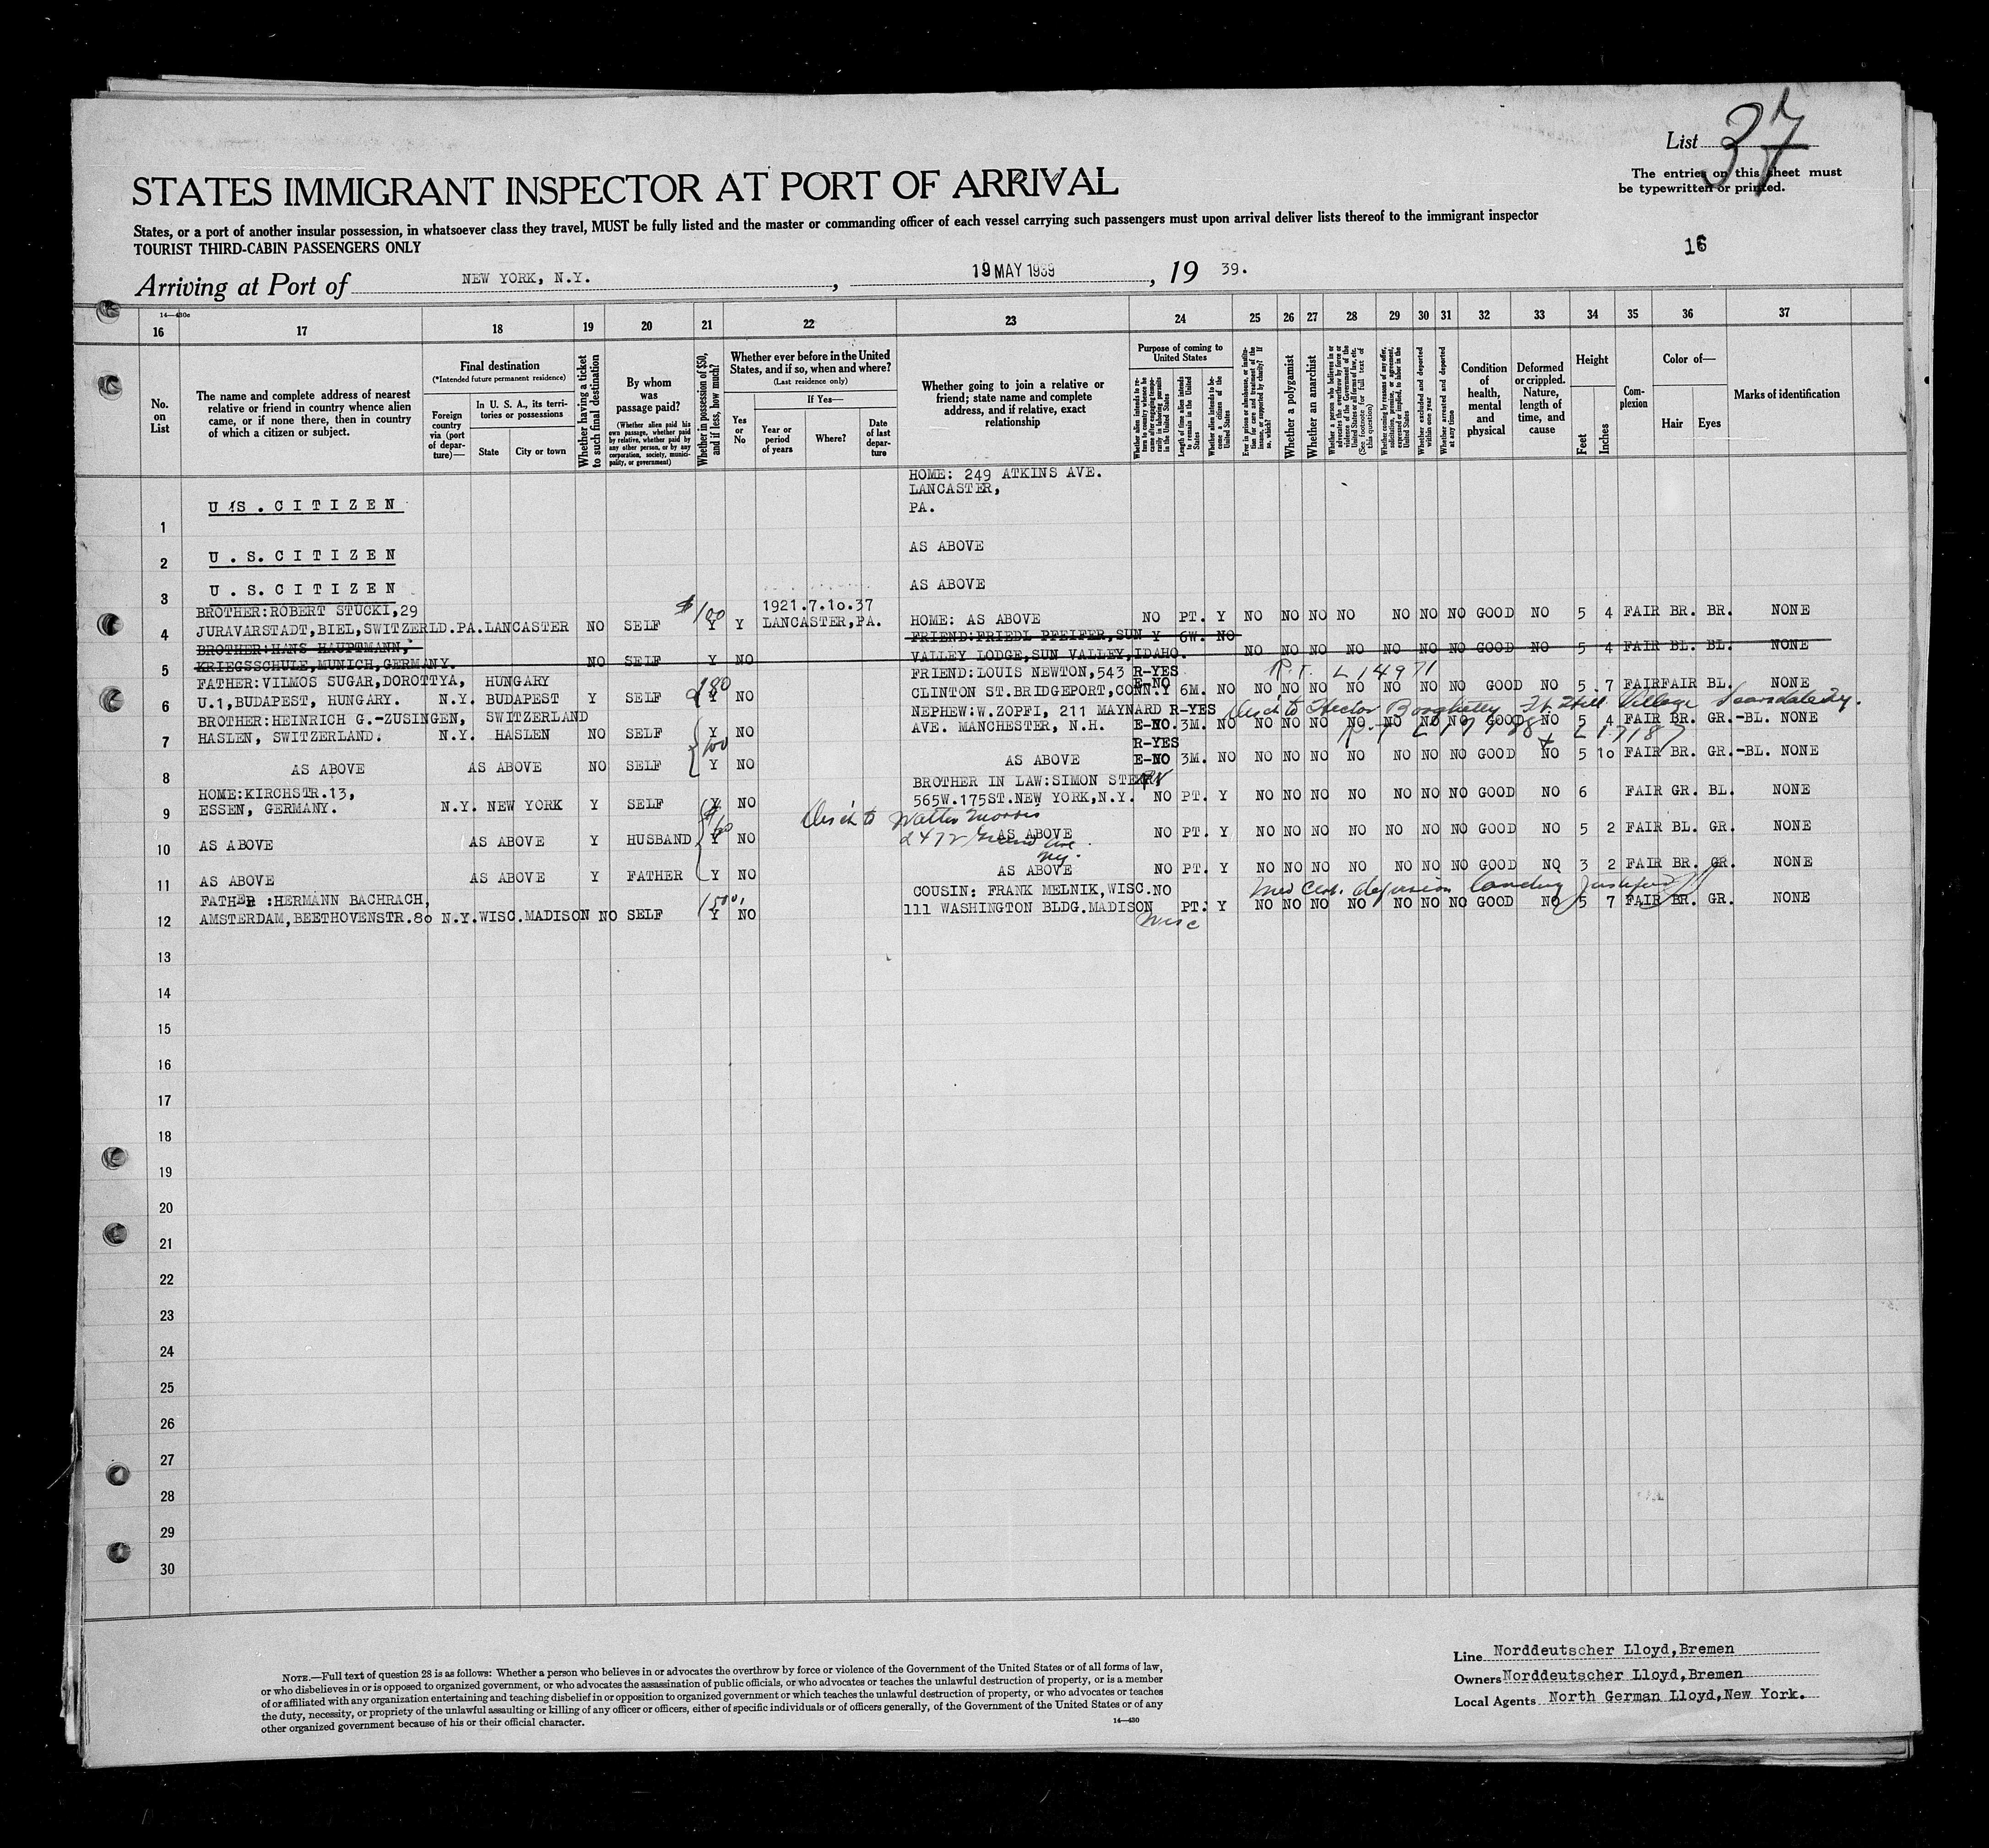 List 37
The entries on this sheet must
be typewritten or printed.
STATES IMMIGRANT INSPECTOR AT PORT OF ARRIVAL
States, or a port of another insular possession, in whatsoever class they travel, MUST be fully listed and the master or commanding officer of each vessel carrying such passengers must upon arrival deliver lists thereof to the immigrant inspector
TOURIST THIRD-CABIN PASSENGERS ONLY
16
Arriving at Port of NEW YORK, N.Y. , 19 MAY 1939 , 19 39.
14—430c
16 17 18 19 20 21 22 23 24 25 26 27 28 29 30 31 32 33 34 35 36 37
No. on List
The name and complete address of nearest relative or friend in country whence alien came, or if none there, then in country of which a citizen or subject.
Final destination
(*Intended future permanent residence)
Foreign country via (port of departure)—
In U. S. A., its territories or possessions
State City or town
Whether having a ticket to such final destination
By whom was passage paid?
(Whether alien paid his own passage, whether paid by relative, whether paid by any other person, or by any corporation, society, municipality, or government)
Whether in possession of $50, and if less, how much?
Whether ever before in the United States, and if so, when and where?
(Last residence only)
Yes or No
If Yes—
Year or period of years
Where?
Date of last departure
Whether going to join a relative or friend; state name and complete address, and if relative, exact relationship
Purpose of coming to United States
Length of time alien intends to remain in the United States
Whether alien intends to become a citizen of the United States
Whether a polygamist
Whether an anarchist
Whether excluded and deported within one year
Whether arrested and deported at any time
Condition of health, mental and physical
Deformed or crippled. Nature, length of time, and cause
Height
Feet Inches
Complexion
Color of—
Hair Eyes
Marks of identification
HOME: 249 ATKINS AVE.
LANCASTER,
1 U.S. CITIZEN PA.
2 U.S. CITIZEN AS ABOVE
3 U.S. CITIZEN AS ABOVE
BROTHER:ROBERT STUCKI,29 $100 1921.7.10.37
4 JURAVARSTADT,BIEL,SWITZERLD.PA.LANCASTER NO SELF Y Y LANCASTER,PA. HOME: AS ABOVE NO PT. Y NO NO NO NO NO NO NO GOOD NO 5 4 FAIR BR. BR. NONE
BROTHER:HANS HAUPTMANN, FRIEND:FRIEDL PFEIFER,SUN Y 6W. NO
5 KRIEGSSCHULE,MUNICH,GERMANY. NO SELF Y NO VALLEY LODGE,SUN VALLEY,IDAHO. NO NO NO NO NO NO NO GOOD NO 5 4 FAIR BL. BL. NONE
FATHER:VILMOS SUGAR,DOROTTYA, HUNGARY 180 FRIEND:LOUIS NEWTON,543 R-YES E-NO R.T. L14971
6 U.1,BUDAPEST, HUNGARY. N.Y. BUDAPEST Y SELF Y NO CLINTON ST.BRIDGEPORT,CONN.Y 6M. NO NO NO NO NO NO NO NO GOOD NO 5 7 FAIRFAIR BL. NONE
BROTHER:HEINRICH G.-ZUSINGEN, SWITZERLAND NEPHEW:W.ZOPFI, 211 MAYNARD R-YES Village Scarsdale
7 HASLEN, SWITZERLAND. N.Y. HASLEN NO SELF Y NO AVE. MANCHESTER, N.H. E-NO. 3M. NO NO NO NO NO NO NO NO GOOD NO 5 4 FAIR BR. GR.-BL. NONE
100 R-YES
8 AS ABOVE AS ABOVE NO SELF Y NO AS ABOVE E-NO 3M. NO NO NO NO NO NO NO NO GOOD NO 5 10 FAIR BR. GR.-BL. NONE
HOME:KIRCHSTR.13, BROTHER IN LAW:SIMON STERN
9 ESSEN, GERMANY. N.Y. NEW YORK Y SELF Y NO 565W.175ST.NEW YORK,N.Y. NO PT. Y NO NO NO NO NO NO NO GOOD NO 6 FAIR GR. BL. NONE
$60 Walter Morris
10 AS ABOVE AS ABOVE Y HUSBAND Y NO 2472 Grand Ave AS ABOVE NO PT. Y NO NO NO NO NO NO NO GOOD NO 5 2 FAIR BL. GR. NONE
NY.
11 AS ABOVE AS ABOVE Y FATHER Y NO AS ABOVE NO PT. Y NO NO NO NO NO NO NO GOOD NO 3 2 FAIR BR. GR. NONE
FATHER :HERMANN BACHRACH, COUSIN: FRANK MELNIK,WISC.NO landing
12 AMSTERDAM,BEETHOVENSTR.80 N.Y.WISC.MADISON NO SELF Y NO 111 WASHINGTON BLDG.MADISON PT. Y NO NO NO NO NO NO NO GOOD NO 5 7 FAIR BR. GR. NONE
Wisc
13
14
15
16
17
18
19
20
21
22
23
24
25
26
27
28
29
30
NOTE.—Full text of question 28 is as follows: Whether a person who believes in or advocates the overthrow by force or violence of the Government of the United States or of all forms of law,
or who disbelieves in or is opposed to organized government, or who advocates the assassination of public officials, or who advocates or teaches the unlawful destruction of property, or is a member
of or affiliated with any organization entertaining and teaching disbelief in or opposition to organized government or which teaches the unlawful destruction of property, or who advocates or teaches
the duty, necessity, or propriety of the unlawful assaulting or killing of any officer or officers, either of specific individuals or of officers generally, of the Government of the United States or of any
other organized government because of his or their official character.
14—430
Line Norddeutscher Lloyd,Bremen
Owners Norddeutscher Lloyd,Bremen
Local Agents North German Lloyd,New York.